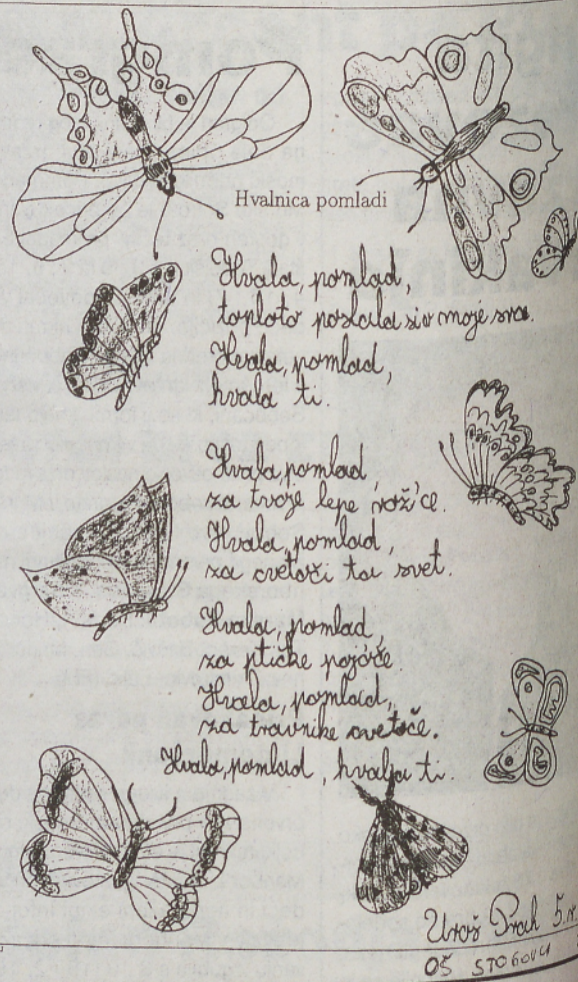 Hvalnica pomladi
Hvala, pomlad,
toploto poslala si v moje sva.
Hvala, pomlad,
hvala ti.
Hvala, pomlad,
za tvoje lepe rož'ce.
Hvala, pomlad,
za cvetoči ta svet.
Hvala, pomlad,
za ptičke pojoče
Hvala, pomlad,
za travnike cvetoče.
Hvala, pomlad, hvala ti.
Uroš Prah 5.r.
OŠ STOGOVCI